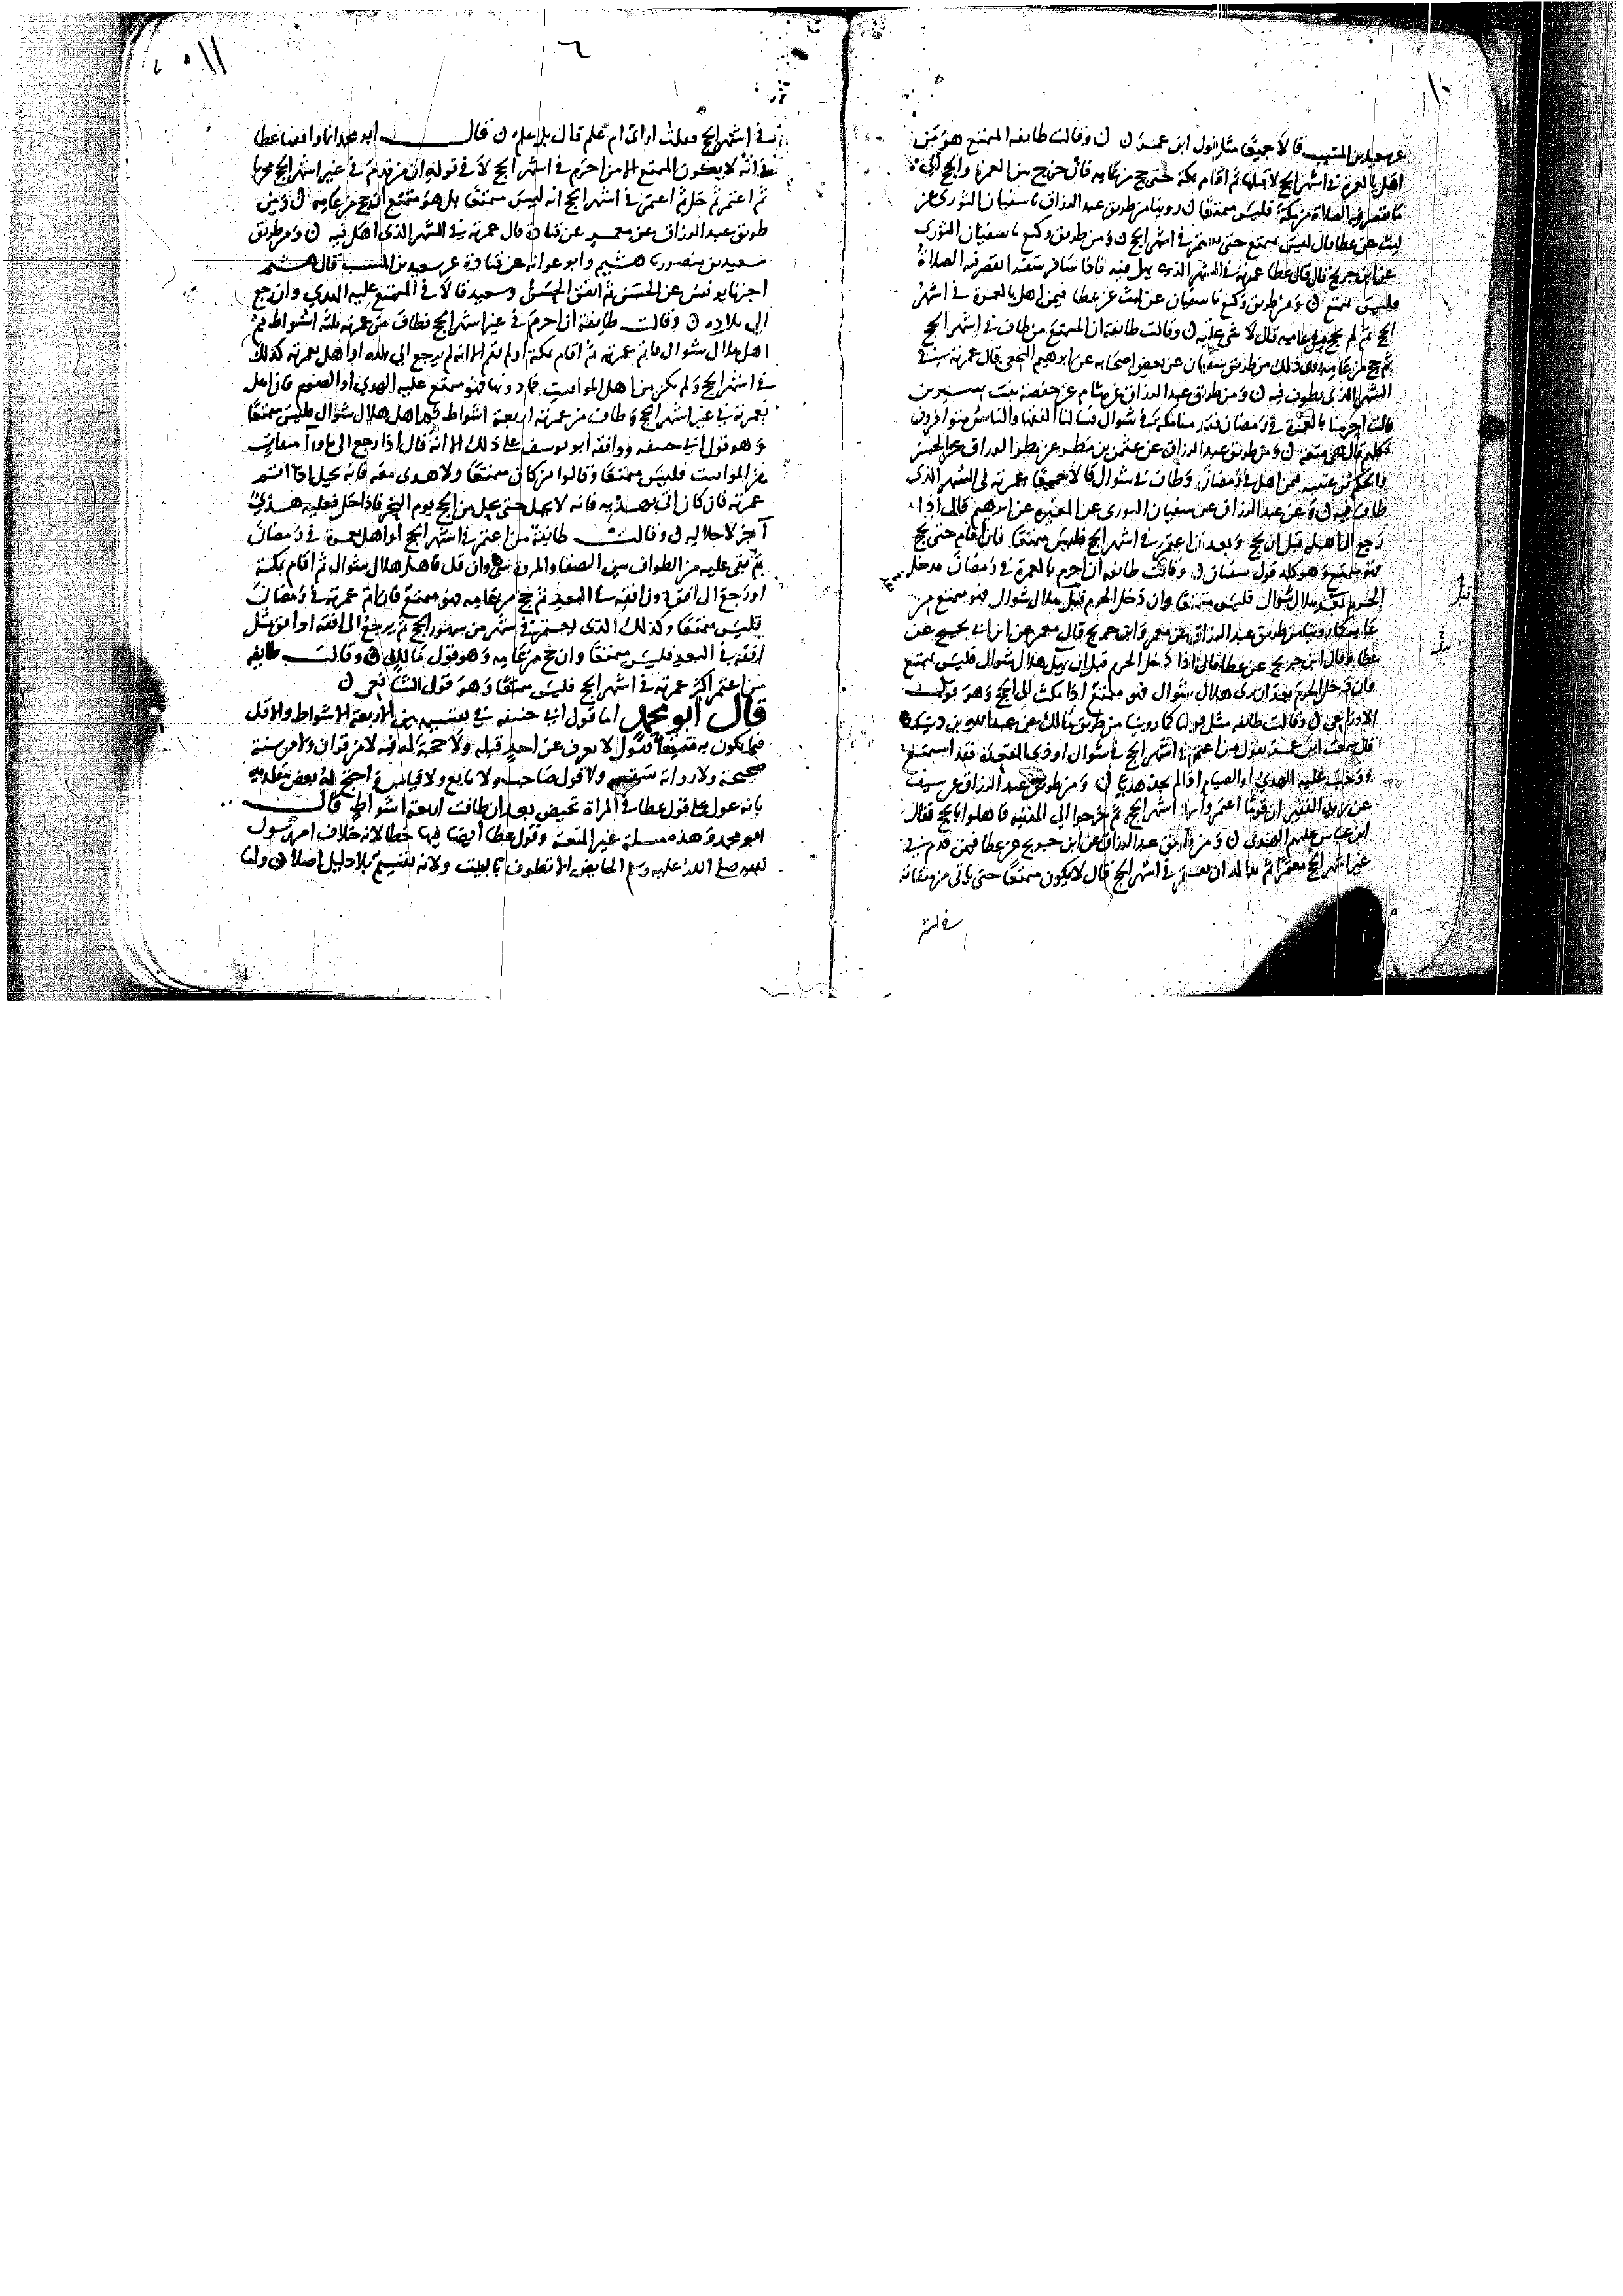 عن سعيد بن المسيب قالا جميعا مثل قول ابن عمر ن وقالت طايفه المتمتع هو من
اهل بالعمرة في اشهر الحج لا قبلها ثم اقام بمكة حتى حج من عامه فان خرج بين العمرة والحج الى
ما تقصر فيه الصلاة من مكة فليس متمتعا ن روينا من طريق عبد الرزاق نا سفيان الثوري عن
ليث عن عطا قال ليس بمتمتع حتى يعتمر في اشهر الحج ن ومن طريق وكيع نا سفيان الثوري
عن ابن جريج قال قال عطا عمرته في الشهر الذي يهل فيه فاذا سافر سفرا تقصر فيه الصلاة
فليس بمتمتع ن ومن طريق وكيع نا سفيان عن ليث عن عطا فيمن اهل بالعمرة في اشهر
الحج ثم لم يحج من عامه قال لا شى عليه ن وقالت طايفة ان المتمتع من طاف في اشهر الحج
ثم حج من عامه ذلك من طريق سفيان عن بعض اصحابه عن ابرهيم النخعي قال عمرته في
الشهر الذي يطوف فيه ن ومن طريق عبد الرزاق عن هشام عن حفصة بنت سيرين
قالت احرمنا بالعمرة في رمضان فقدمنا مكة في شوال فسالنا الفقها والناس متوافرون
فكلهم قال هي متعة ن ومن طريق عبد الرزاق عن عثمن بن مطر عن مطر الوراق عن الحسن
والحكم بن عتيبه فمن اهل في رمضان وطاف في شوال قالا جميعا عمرته في الشهر الذي
طاف فيه ن وعن عبد الرزاق عن سفيان الثوري عن المغيره عن ابرهيم قال اذا
رجع الى اهله قبل ان يحج وبعد ان اعتمر في اشهر الحج فليس متمتعا فان اقام حتى يحج
فهو متمتع وهو كله قول سفيان ن وقالت طايفه ان احرم بالعمرة في رمضان فدخل
الحرم بعد هلال شوال فليس متمتعا وان دخل الحرم قبل هلال شوال فهو متمتع من
عامه كما روينا من طريق عبد الرزاق عن معمر وابن جريج قال معمر عن ابن ابي نجيح عن
عطا وقال ابن جريج عن عطا قال اذا دخل الحرم قبل ان يهل هلال شوال فليس بمتمتع
وان دخل الحرم بعد ان رى هلال شوال فهو متمتع اذا مكث الى الحج وهو قول
الاوزاعي ن وقالت طايفه مثل قولنا كما روينا من طريق مالك عن عبد الله بن دينار
قال سمعت ابن عمر يقول من اعتمر في اشهر الحج في شوال او ذي القعدة فقد استمتع
ووجب عليه الهدي او الصيام اذا لم يجد هديا ن ومن طريق عبد الرزاق عن سيف
عن يزيد الفقير ان قوما اعتمروا في اشهر الحج ثم خرجوا الى المدينه فاهلوا بالحج فقال
ابن عباس عليهم الهدى ن ومن طريق عبد الرزاق عن ابن جريج عن عطا فيمن قدم في
غير اشهر الحج معتمرا ثم بدا له ان يعتمر في اشهر الحج قال لا يكون متمتعا حتى ياتى من ميقاته
في اشهر
في اشهر الحج فقلت اراى ام علم قال بل علم ن قال ابو محمد اما وافقنا عطا
في انه لا يكون المتمتع الا من احرم في اشهر الحج لا في قوله ان من قدم في غير اشهر الحج محرما
ثم اعتمر ثم حل ثم اعتمر في اشهر الحج انه ليس متمتعا بل هو متمتع ان حج من عامه ن ومن
طريق عبد الرزاق عن معمر عن قتادة قال عمرته في الشهر الذي اهل فيه ن ومن طريق
سعيد بن منصور نا هشيم وابو عوانه عن قتادة عن سعيد بن المسيب قال هشيم
اخبرنا يونس عن الحسن ثم اتفق الحسن وسعيد قالا في المتمتع عليه الهدي وان رجع
الى بلاده ن وقالت طايفة ان احرم في غير اشهر الحج فطاف من عمرته ثلثة اشواط ثم
اهل هلال شوال فاتم عمرته ثم اقام بمكة او لم يقم الا انه لم يرجع الى بلده او اهل بعمرته كذلك
في اشهر الحج ولم يكن من اهل المواقيت فما دونها فهو متمتع عليه الهدي او الصوم فان اهل
بعمرته في غير اشهر الحج وطاف من عمرته اربعة اشواط ثم اهل هلال شوال فليس متمتعا
وهو قول ابي حنيفه ووافقه ابو يوسف على ذلك الا انه قال اذا رجع الى ما ورا ميقات
من المواقيت فليس متمتعا وقالوا من كان متمتعا ولا هدي معه فانه يحل اذا اتم
عمرته فان كان اتى بهديه فانه لا يحل حتى يحل من الحج يوم النحر فاذا حل فعليه هدي
آخر لاحلاله ن وقالت طايفة من اعتمر في اشهر الحج او اهل بعمرة في رمضان
ثم بقى عليه من الطواف بين الصفا والمروة شى وان قل فاهل هلال شوال ثم اقام بمكة
او رجع الى افق دون افقه في البعد ثم حج من عامه فهو متمتع فان اتم عمرته في رمضان
فليس متمتعا وكذلك الذي يعتمر في شهر من شهور الحج ثم يرجع الى افقه او افق مثل
افقه في البعد فليس متمتعا وان حج من عامه وهو قول مالك ن وقالت طايفه
من اعتمر اكثر عمرته في اشهر الحج فليس متمتعا وهو قول الشافعي ن
قال ابو محمد اما قول ابي حنيفه في تقسيمه بين الاربعة الاشواط والاقل
فيما يكون به متمتعا فقول لا يعرف عن احد قبله ولا حجة له فيه لا من قران ولا من سنة
صحيحة ولا رواية سقيمة ولا قول صاحب ولا تابع ولا قياس واحتج له بعض مقلديه
بانه عول على قول عطا في المراة تحيض بعد ان طافت اربعة اشواط قال
ابو محمد وهذه مسلة غير المتعة وقول عطا ايضا فيها خطا لانه خلاف امر رسول
الله صلى الله عليه وسلم الحايض الا تطوف بالبيت ولانه تقسيم بلا دليل اصلا ن واما